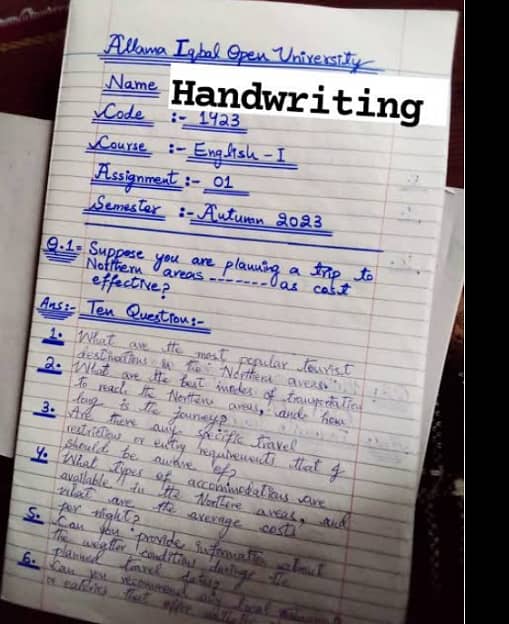 Allama Iqbal Open University
Name Handwriting
Code :- 1423
Course :- English - I
Assignment :- 01
Semester :- Autumn 2023
Q.1- Suppose you are planning a trip to
Nothern areas - - - - - - - as cost
effective?
Ans:- Ten Question:-
1. What are the most popular tourist
destinations in the Northern areas?
2. What are the best modes of transportation
to reach the Northern areas, and how
long is the journey?
3. Are there any specific travel
restrictions or entry requirements that I
should be aware of?
4. What types of accommodations are
available in the Northern areas, and
what are the average costs
per night?
5. Can you provide information about
the weather conditions during the
planned travel dates?
6. Can you recommend any local
or eateries that offer